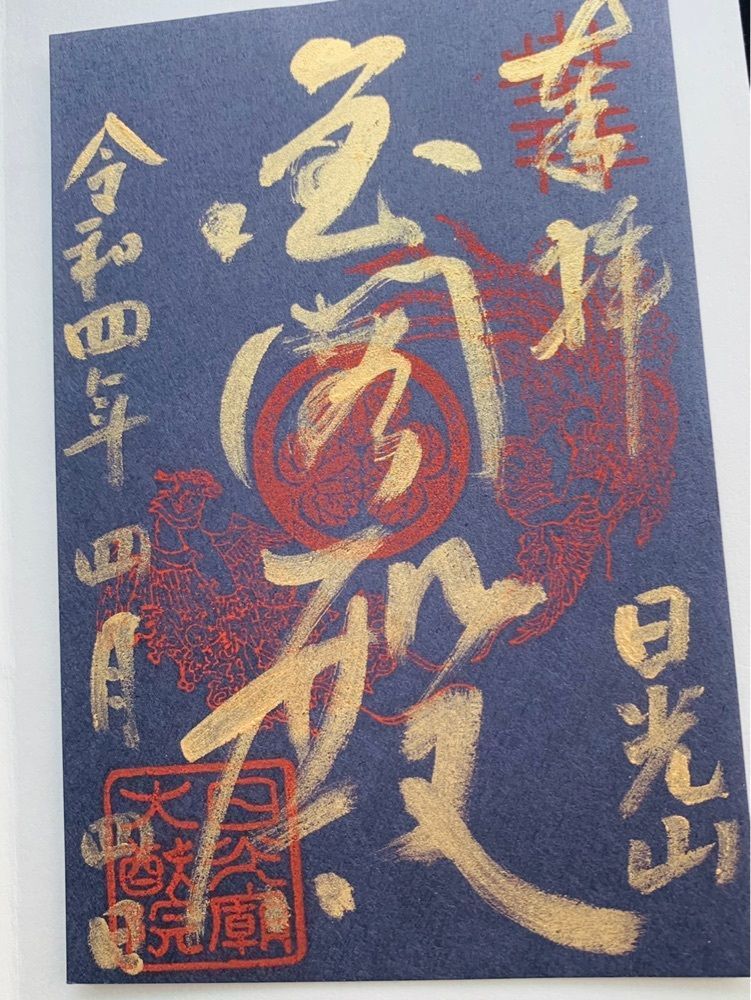 奉拝
日光山
金閣殿
令和四年四月四日
日光廟
大猷院